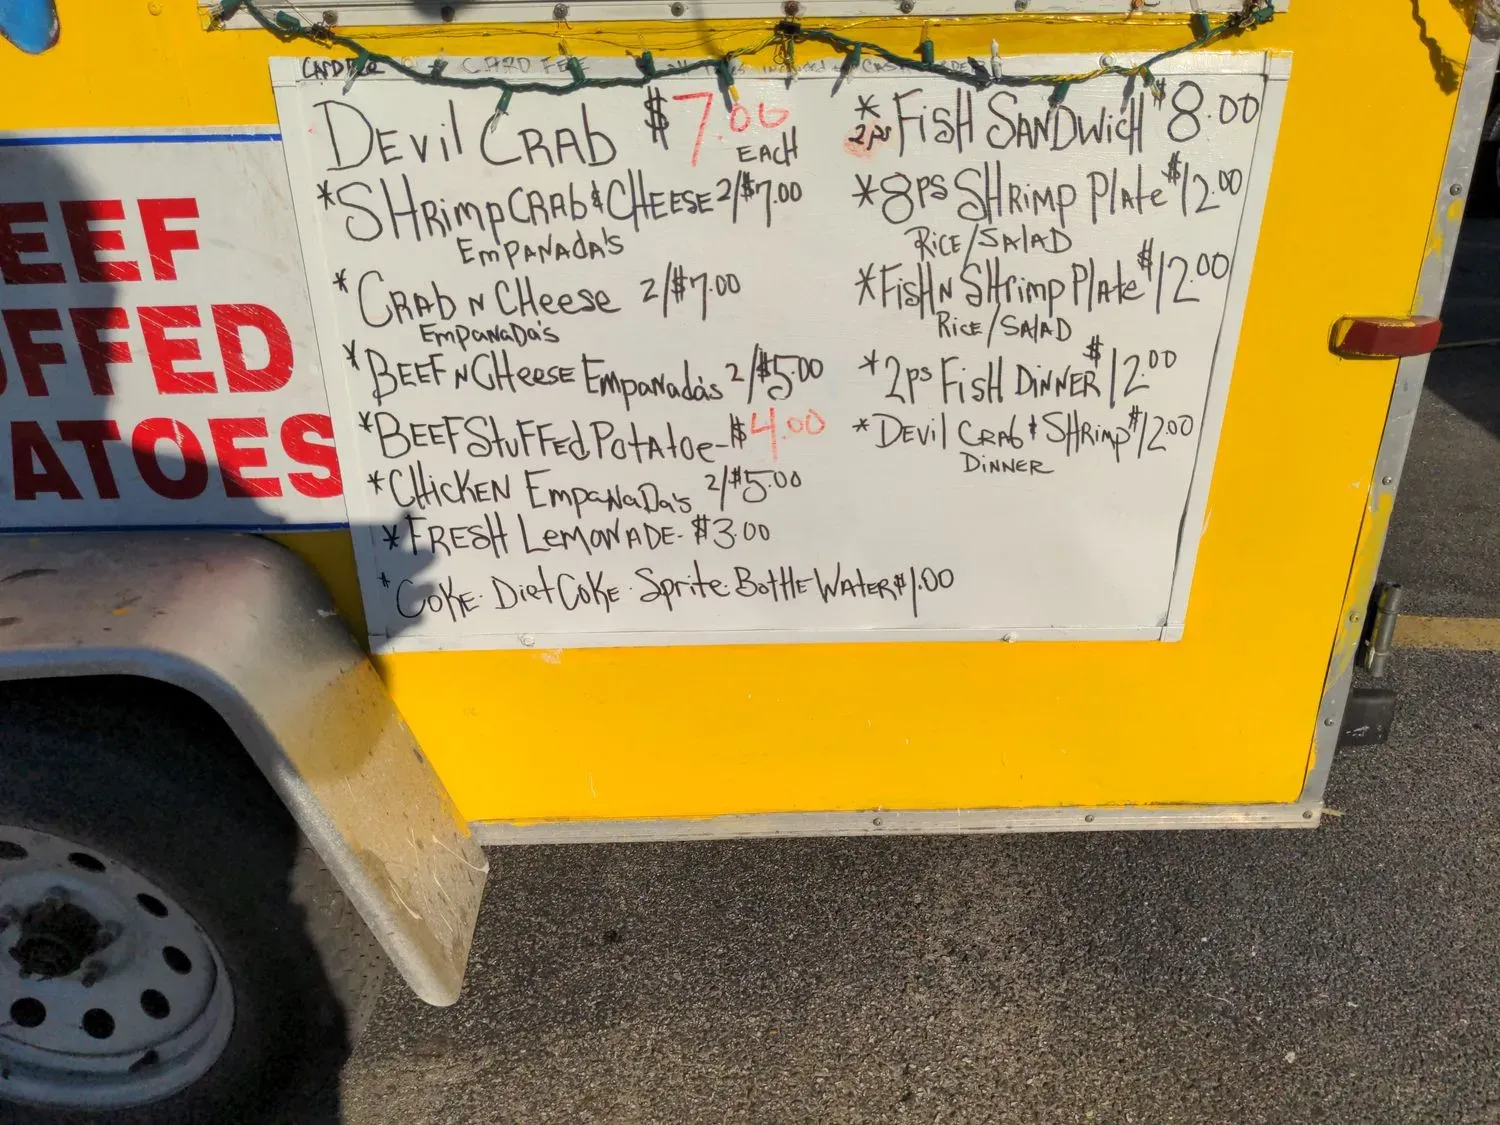 CARD FEE
CARD FEE
DEvil CRAb $7.00
EACH
*SHRimp CRAb & CHEESE 2/$7.00
EmPANAdA'S
*CRAb N CHeese 2/$7.00
EmpaNaDa's
*BEEF N CHeese EmpaNada's 2/$5.00
*BEEF StuFFed PotAtoe-$4.00
*CHicKEN EmpaNaDa's 2/$5.00
*FRESH LemoNADE-$3.00
*CoKe. Diet CoKe. Sprite. Bottle Water $1.00
*FiSH SANDwicH $8.00
2ps
*8ps SHRimp PlAte $12.00
Rice/SAlAD
*FisH N SHrimp Plate $12.00
Rice/SAlAD
*2ps FisH DiNNER $12.00
*Devil CRAb & SHRimp $12.00
DiNNER
EEF
FFED
ATOES